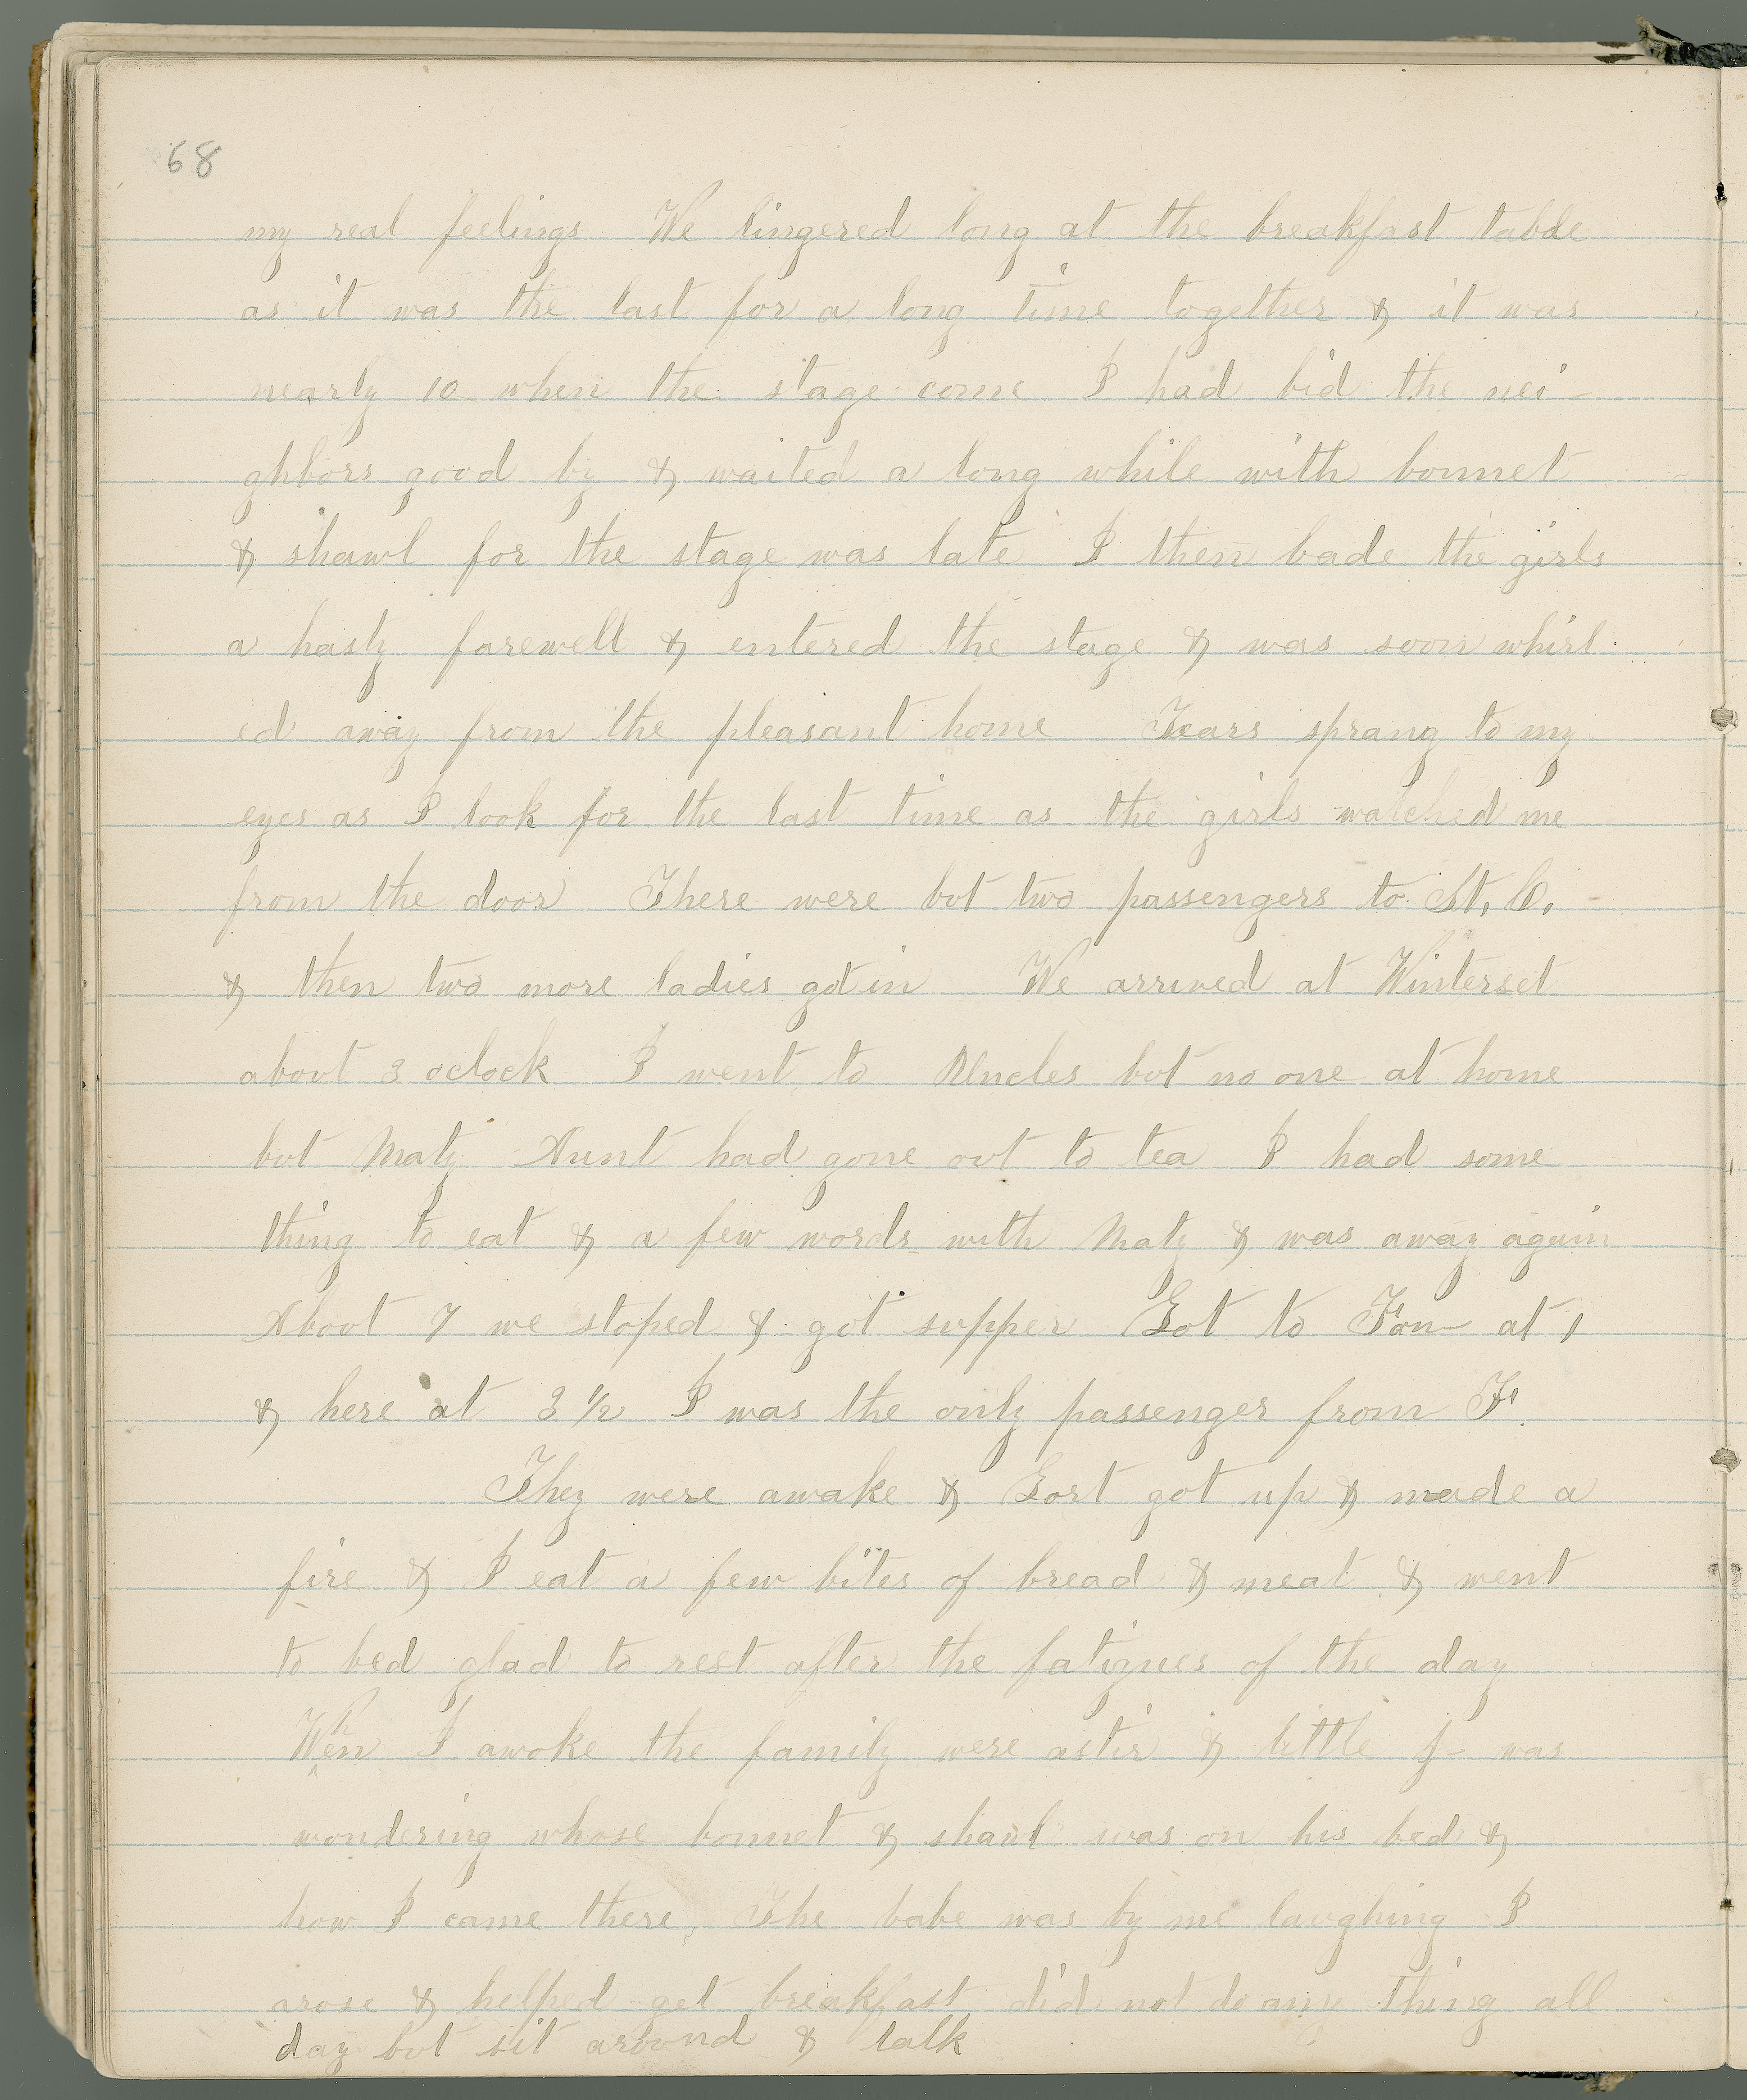 68
my real feelings We lingered long at the breakfast table
as it was the last for a long time together & it was
nearly 10 when the stage come I had bid the nei-
ghbors good by & waited a long while with bonnet
& shawl for the stage was late I then bade the girls
a hasty farewell & entered the stage & was soon whirl-
ed away from the pleasant home Tears sprang to my
eyes as I look for the last time as the girls watched me
from the door There were but two passengers to St, C,
& then two more ladies got in We arrived at Winterset
about 3 oclock I went to Uncles but no one at home
but Maty Aunt had gone out to tea I had some
thing to eat & a few words with Maty & was away again
About 7 we stoped & got supper Got to Fon- at 1
& here at 3 1/2 I was the only passenger from F.
They were awake & Gort got up & made a
fire & I eat a few bites of bread & meat & went
to bed glad to rest after the fatigues of the day
When I awoke the family were astir & little J- was
wondering whose bonnet & shawl was on his bed &
how I came there, The babe was by me laughing I
arose & helped get breakfast did not do any thing all
day but sit around & talk